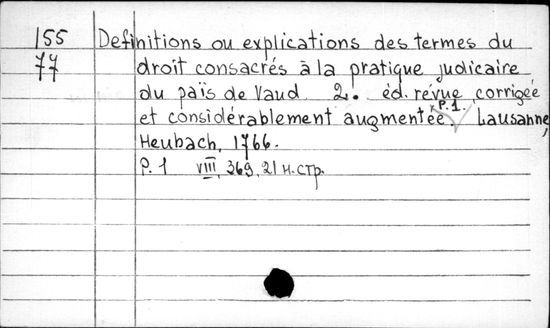 155 Definitions ou explications des termes du
77 droit consacrés à la pratique judicaire
du païs de Vaud 2. éd. révue corrigée
et considérablement augmentée. P.1. Lausanne,
Heubach, 1766.
P. 1 VIII, 369, 21 н.стр.